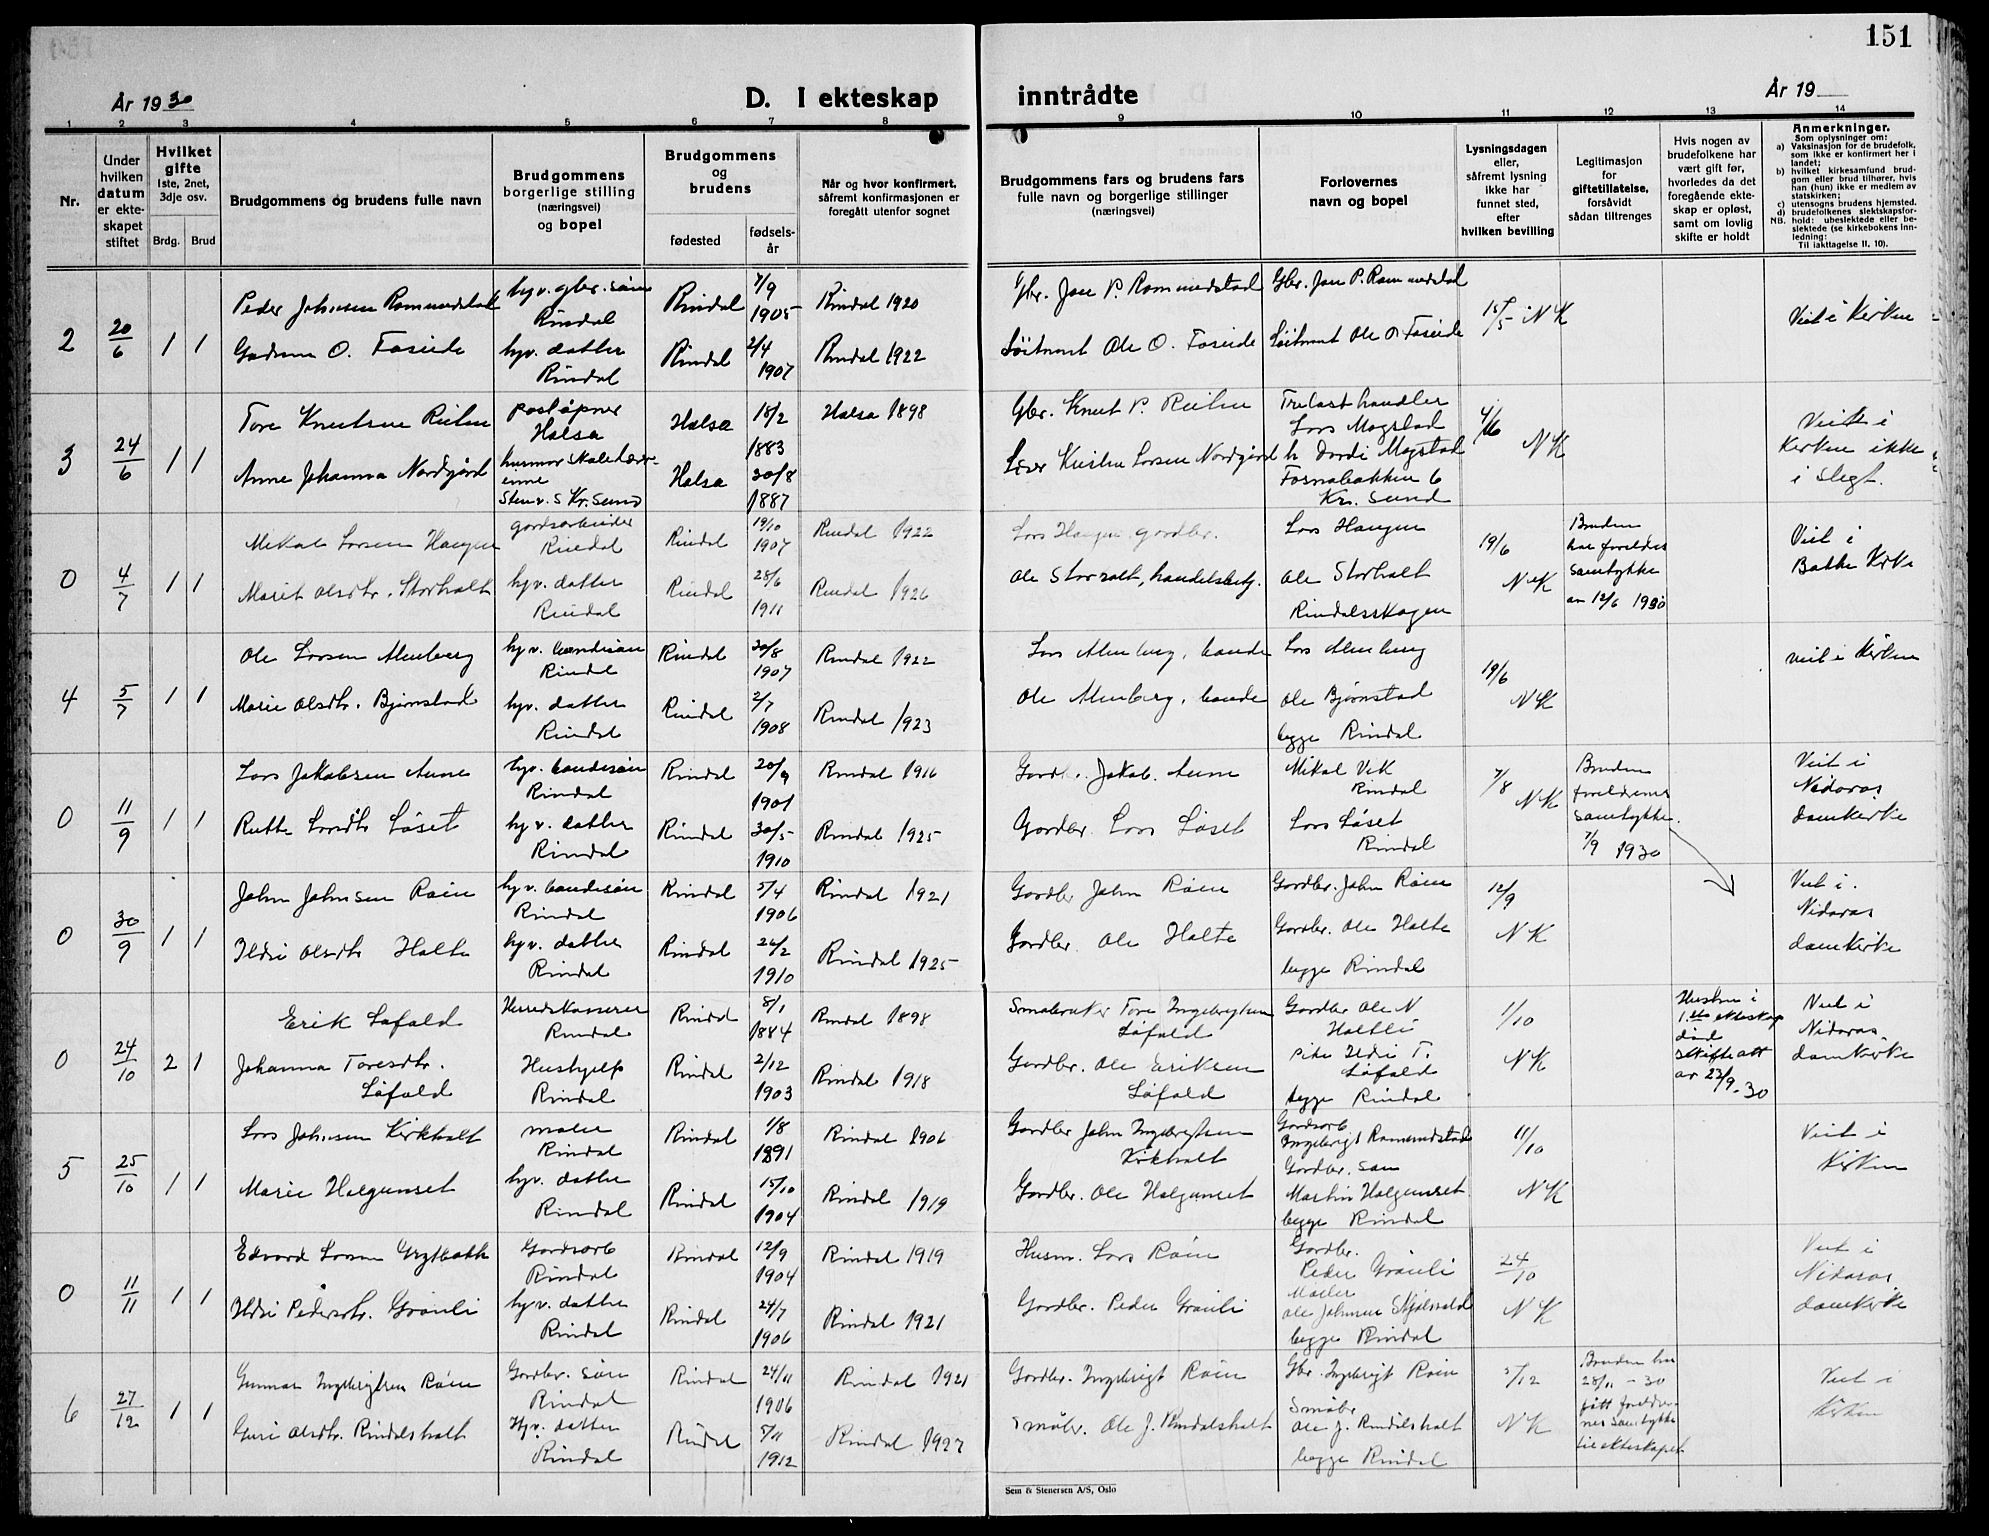 151
År 1930
D. I ekteskap inntrådte
År 19
1 2 3 4 5 6 7 8 9 10 11 12 13 14
Nr.
Under hvilken datum er ekteskapet stiftet
Hvilket gifte 1ste, 2net, 3dje osv.
Brdg. Brud
Brudgommens og brudens fulle navn
Brudgommens borgerlige stilling (næringsvei) og bopel
Brudgommens og brudens
fødested
fødselsår
Når og hvor konfirmert, såfremt konfirmasjonen er foregått utenfor sognet
Brudgommens fars og brudens fars fulle navn og borgerlige stillinger (næringsvei)
Forlovernes navn og bopel
Lysningsdagen eller, såfremt lysning ikke har funnet sted, efter hvilken bevilling
Legitimasjon for giftetillatelse, forsåvidt sådan tiltrenges
Hvis nogen av brudefolkene har vært gift før, hvorledes da det foregående ekteskap er opløst, samt om lovlig skifte er holdt
Anmerkninger.
Som oplysninger om:
a) Vaksinasjon for de brudefolk, som ikke er konfirmert her i landet;
b) hvilket kirkesamfund brudgom eller brud tilhører, hvis han (hun) ikke er medlem av statskirken;
c) utensogns brudens hjemsted.
d) brudefolkenes slektskapsforhold: ubeslektede eller beslektede (se kirkebokens innledning:
NB. Til iakttagelse II, 10).
2 20/6 1 1 Peder Johnsen Rommundstad hyv. gbr. søn Rindal Rindal 7/9 1905 Rindal 1920 Gbr. Jon P. Rommundstad Gbr. Jon P. Rommundstad 15/5 NK Viet i Kirken
Gudrun O. Foseide hyv. datter Rindal Rindal 2/4 1907 Rindal 1922 Løitnant Ole O. Foseide Løitnant Ole O. Foseide
3 24/6 1 1 Tore Knutsen poståpner Halsa Halsa 18/2 1883 Halsa 1898 Gbr. Knut P. Trelasthandler Lars Magstad NK Viet i Kirken ikke i slegt.
Anne Johanna Nordgård Halsa 30/8 1887 Kristen Larsen Nordgård Magstad Fosnabakken 6 Kr. Sund
0 4/7 1 1 Mikal Larsen Haugen gårdsarbeider Rindal Rindal 19/10 1907 Rindal 1922 Lars Haugen gårdbr. Lars Haugen 19/6 NK Bruden har foreldres samtykke av 12/6 1930 Viet i Bakke Kirke
Marit Olsdtr. Storholt hyv. datter Rindal Rindal 28/6 1911 Rindal 1926 Ole Storholt, handelsbetj. Ole Storholt Rindalsskogen
4 5/7 1 1 Ole Larsen Almberg hyv. bondesøn Rindal Rindal 30/8 1907 Rindal 1922 Lars Almberg, bonde Lars Almberg 19/6 NK Viet i Kirken
Marie Olsdtr. Bjørnstad hyv. datter Rindal Rindal 2/7 1908 Rindal 1923 Ole Almberg, bonde Ole Bjørnstad begge Rindal
0 11/9 1 1 Lars Jakobsen Aune hyv. bondesøn Rindal Rindal 20/9 1901 Rindal 1916 Gårdbr. Jakob Aune Mikal Vik Rindal 7/8 NK Bruden foreldrenes samtykke 7/9 1930 Viet i Nidaros domkirke
Ruth Larsdtr Løset hyv. datter Rindal Rindal 30/5 1910 Rindal 1925 Gårdbr. Lars Løset Lars Løset Rindal
0 30/9 1 1 John Johnsen Røen hyv. bondesøn Rindal Rindal 5/4 1906 Rindal 1921 Gårdbr John Røen Gårdbr. John Røen 12/9 NK Viet i Nidaros domkirke
Ildri Olsdtr Halte hyv. datter Rindal Rindal 26/2 1910 Rindal 1925 Gårdbr. Ole Halte Gårdbr. Ole Halte begge Rindal
0 24/10 2 1 Erik Løfald Herredskasserer Rindal Rindal 8/1 1884 Rindal 1898 Småbruker Tore Ingebrigtsen Løfald Gårdbr Ole N Holtlie 1/10 NK Hustru i 1.ste ekteskap død skifteatt av 23/9-30 Viet i Nidaros domkirke
Johanna Toresdtr. Løfald Hushjelp Rindal Rindal 2/12 1903 Rindal 1918 Gårdbr. Ole Eriksen Løfald pike Ildri T. Løfald begge Rindal
5 25/10 1 1 Lars Johnsen Kirkholt maler Rindal Rindal 1/8 1891 Rindal 1906 Gårdbr John Ingebrigtsen Kirkholt Gårdsarb Ingebrigt Romundstad 11/10 NK Viet i Kirken
Marie Helgunset hyv. datter Rindal Rindal 15/10 1904 Rindal 1919 Gårdbr. Ole Helgunset Gårdbr. søn Martin Helgunset begge Rindal
0 11/11 1 1 Edvard Larsen Grytbakk Gårdsarb Rindal Rindal 12/9 1904 Rindal 1919 Husm. Lars Røen Gårdbr. Peder Grønli 24/10 NK Viet i Nidaros domkirke
Ildri Pedersdtr. Grønli hyv. datter Rindal Rindal 24/7 1906 Rindal 1921 Gårdbr. Peder Grønli Maler Ole Johnsen Skjølsvold begge Rindal
6 27/12 1 1 Gunnar Ingebrigtsen Røen Gårdbr. søn Rindal Rindal 24/11 1906 Rindal 1921 Gårdbr. Ingebrigt Røen Gbr. Ingebrigt Røen 5/12 NK Bruden har 28/11 - 30 fått foreldrenes samtykke til ekteskapet Viet i Kirken
Guri Olsdtr. Rindalsholt Hyv. datter Rindal Rindal 5/11 1912 Rindal 1927 Småbr. Ole J. Rindalsholt Småbr Ole J. Rindalsholt begge Rindal
Sem & Stenersen A/S, Oslo